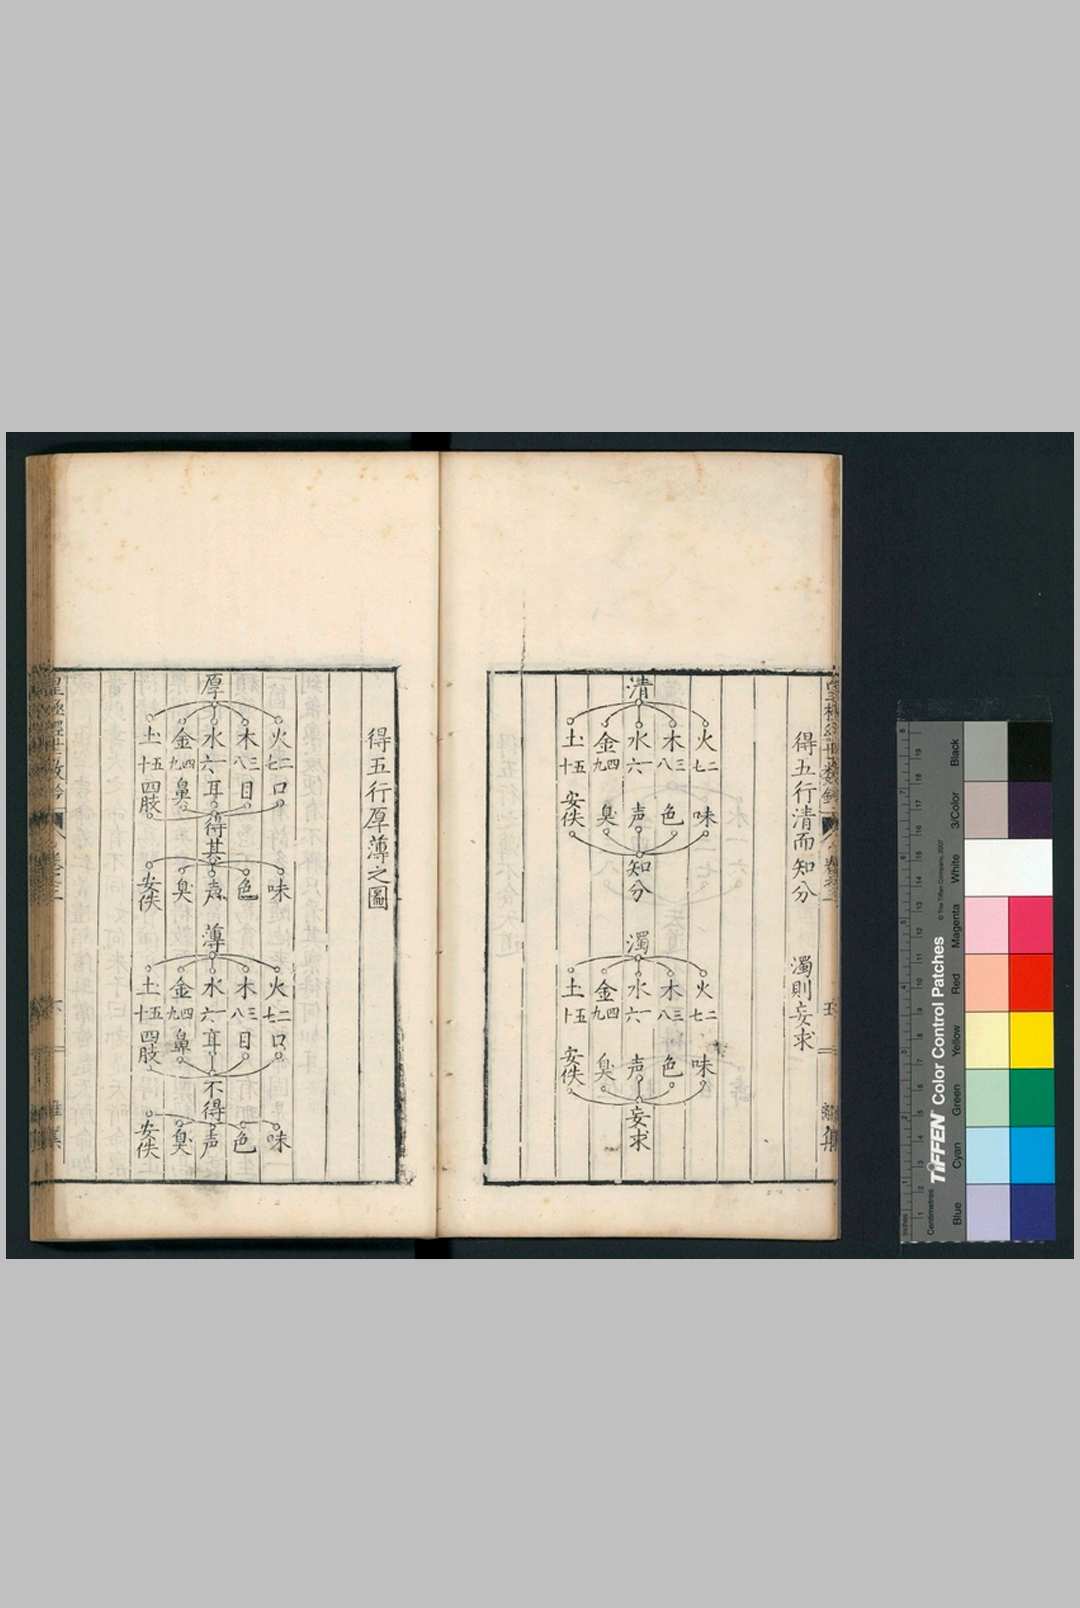 得五行清而知分
濁則妄求
清
火 木 水 金 土
二七 三八 一六 四九 五十
味 色 声 臭 安佚
知分
濁
火 木 水 金 土
二七 三八 一六 四九 五十
味 色 声 臭 安佚
妄求
得五行厚薄之圖
厚
火 木 水 金 土
二七 三八 一六 四九 五十
口 目 耳 鼻 四肢
得其
味 色 声 臭 安佚
薄
火 木 水 金 土
二七 三八 一六 四九 五十
口 目 耳 鼻 四肢
不得
味 色 声 臭 安佚
皇極經世
TIFFEN Color Control Patches
© The Tiffen Company, 2007
Centimetres
Inches
Blue
Cyan
Green
Yellow
Red
Magenta
White
3/Color
Black